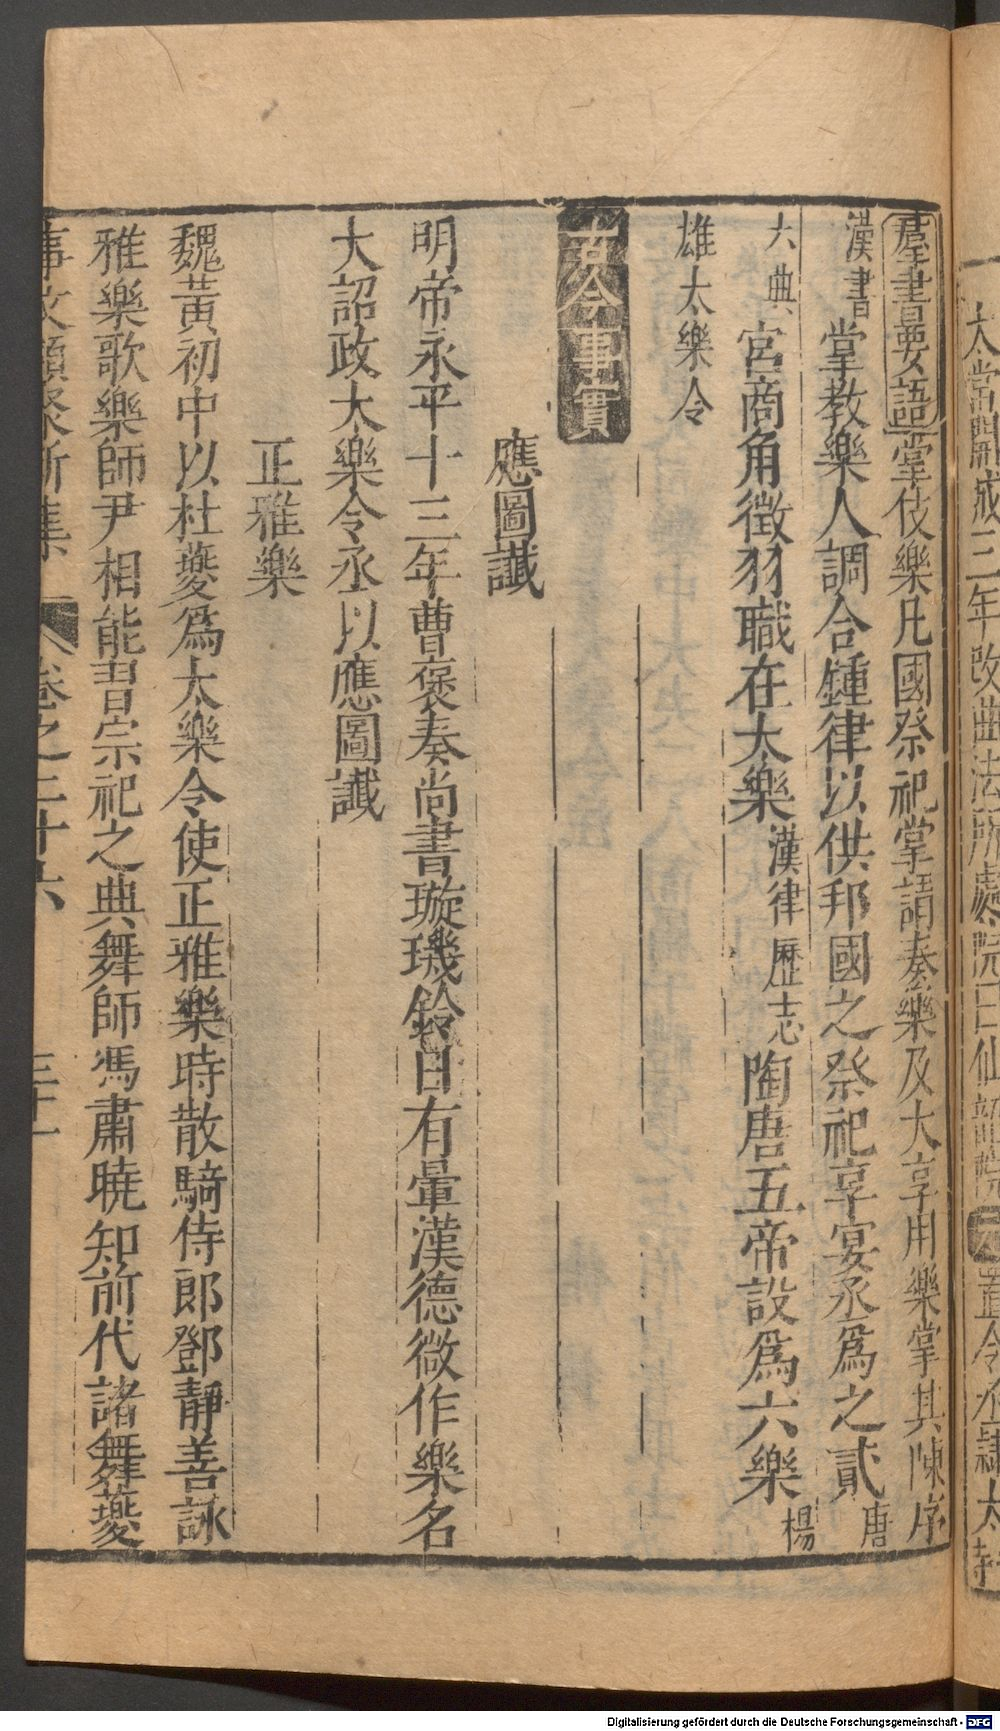 太常開成三年改曲法所處院曰仙韶院元置令丞隸太常
羣書要語掌伎樂凡國祭祀掌請奏樂及大享用樂掌其陳序
漢書掌教樂人調合鍾律以供邦國之祭祀享宴丞爲之貳唐
六典宮商角徵羽職在太樂漢律歷志陶唐五帝設爲六樂楊
雄太樂令
古今事實
應圖讖
明帝永平十三年曹褒奏尚書璇璣鈐曰有暈漢德微作樂名
大詔政大樂令丞以應圖讖
正雅樂
魏黃初中以杜夔爲太樂令使正雅樂時散騎侍郎鄧靜善詠
雅樂歌樂師尹相能習宗祀之典舞師馮肅曉知前代諸舞夔
事文類聚新集 卷之三十六 三十一
Digitalisierung gefördert durch die Deutsche Forschungsgemeinschaft - DFG